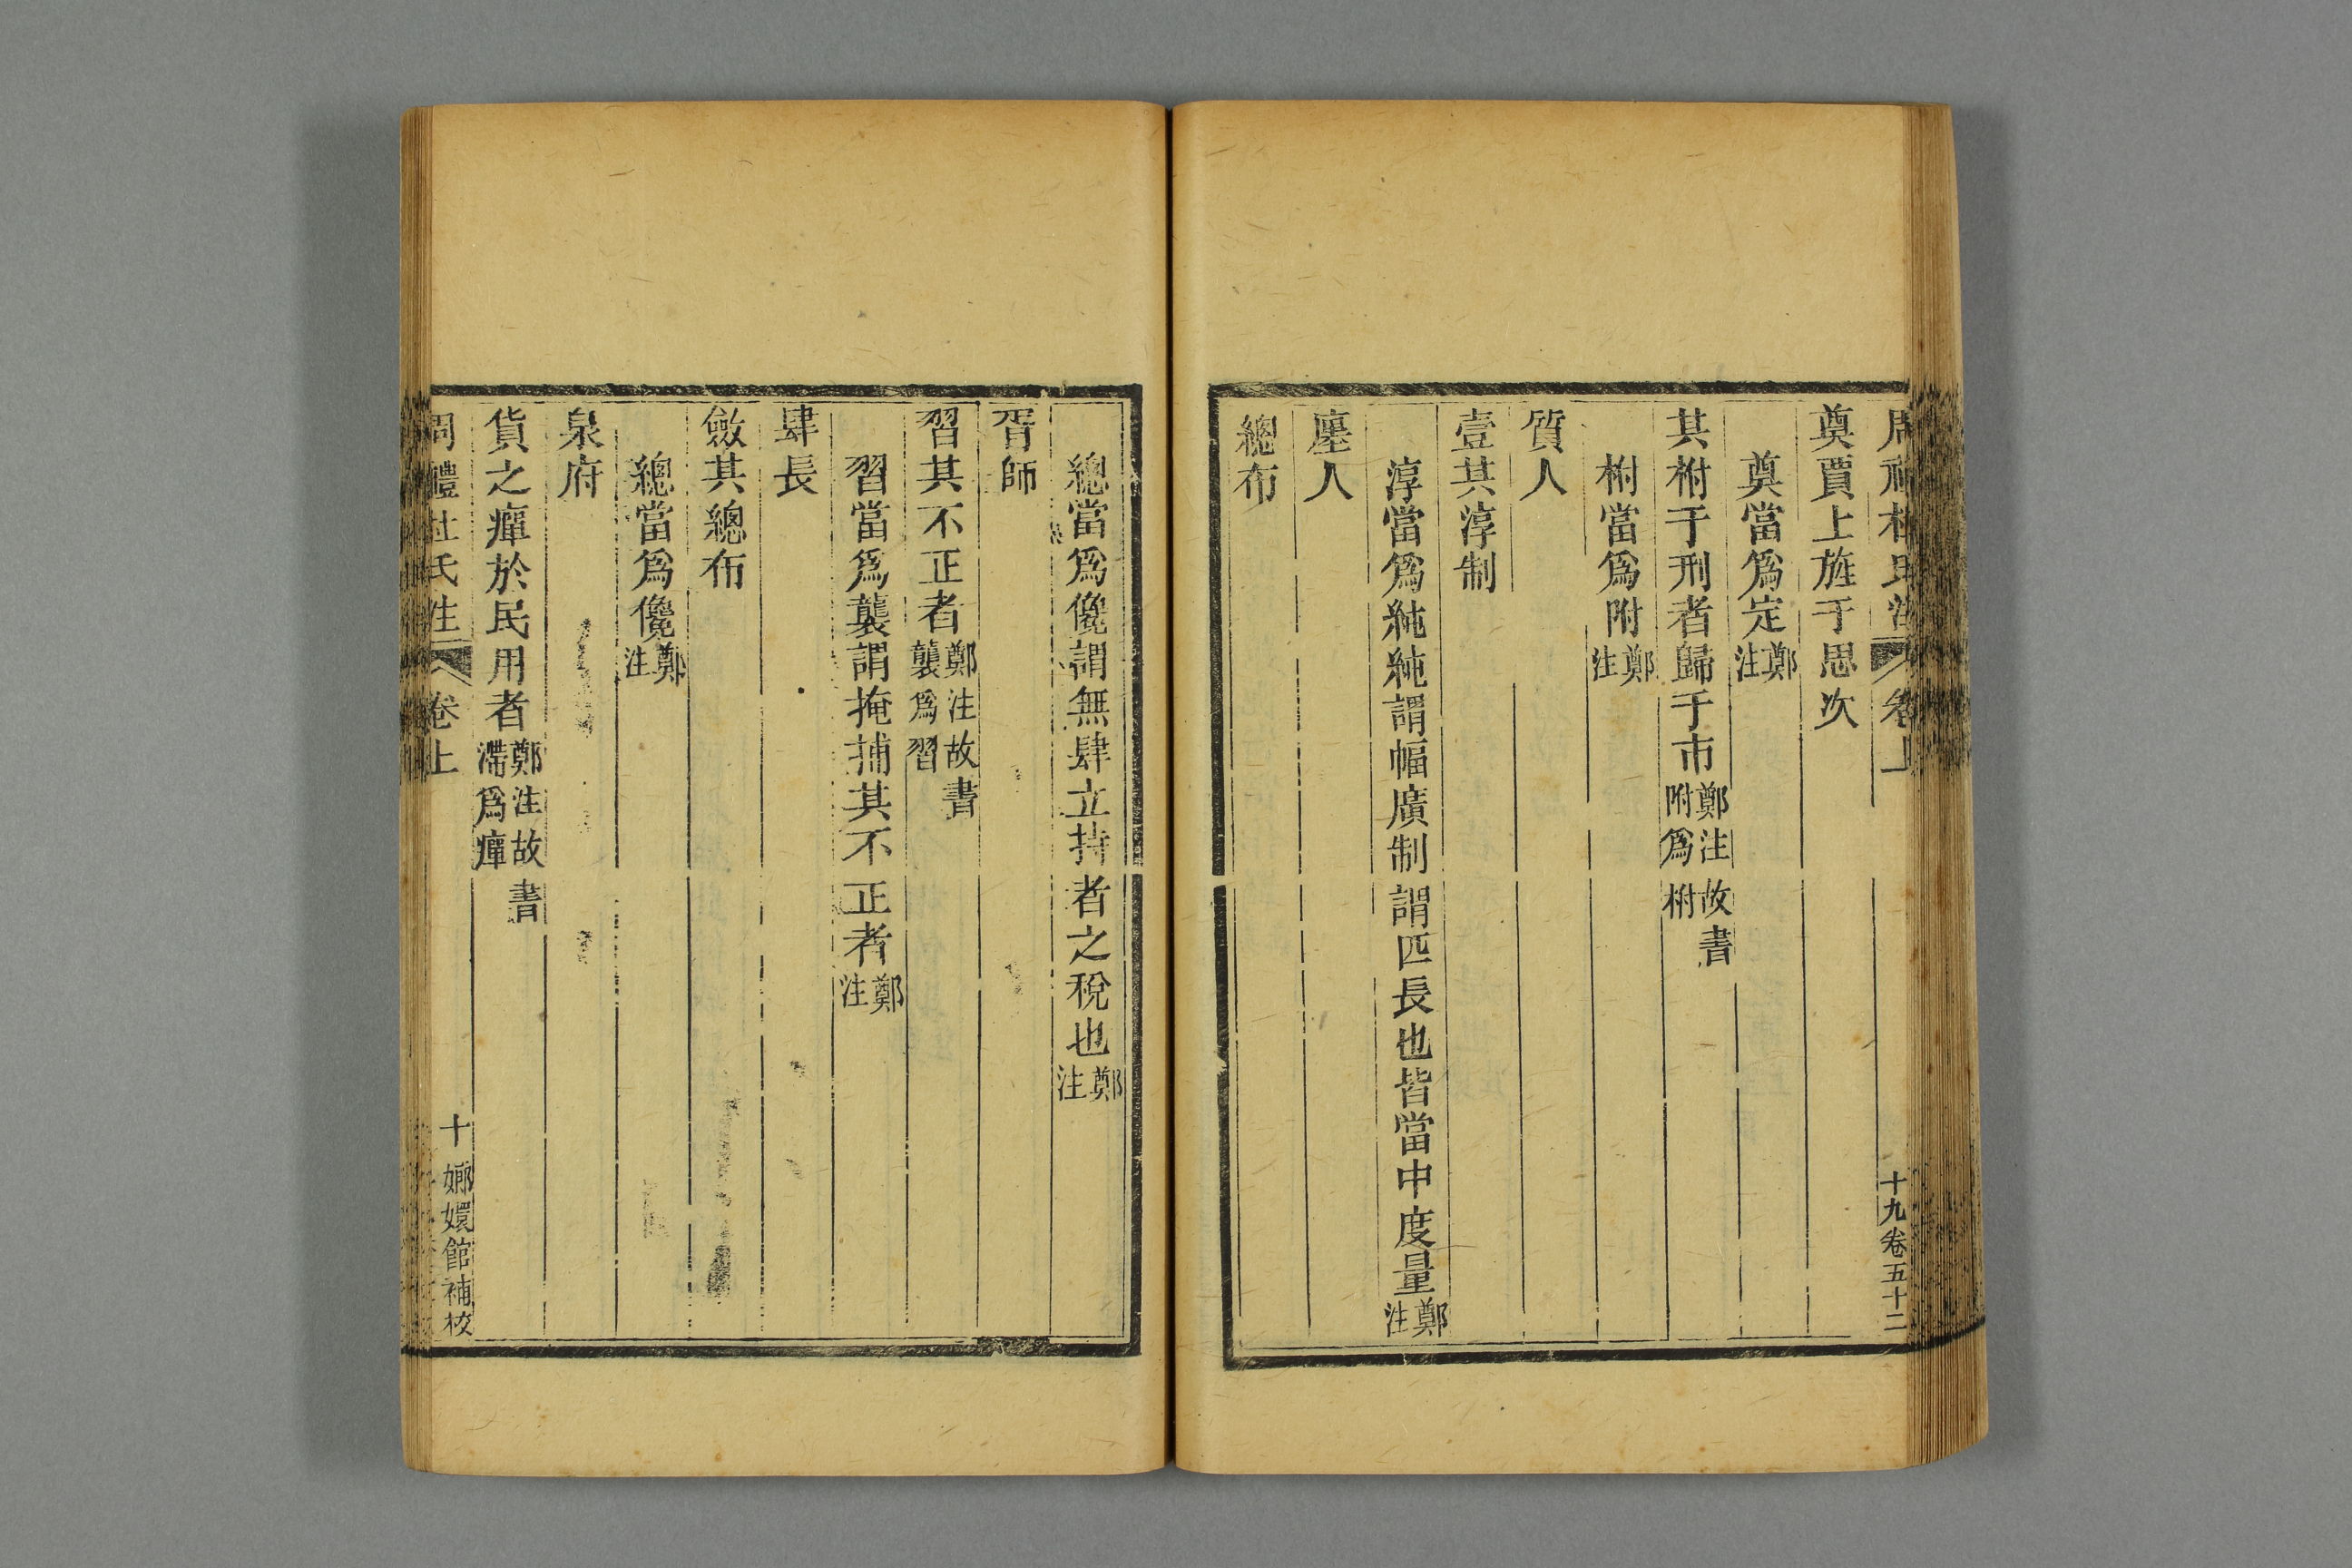 周禮杜氏注 卷上 十九卷五十二
奠賈上旌于思次
奠當爲定鄭注
其柎于刑者歸于市鄭注故書附爲柎
柎當爲附鄭注
質人
壹其淳制
淳當爲純純謂幅廣制謂匹長也皆當中度量鄭注
廛人
總布
總當爲儳謂無肆立持者之稅也鄭注
胥師
習其不正者鄭注故書襲爲習
習當爲襲謂掩捕其不正者鄭注
肆長
斂其總布
總當爲儳鄭注
泉府
貨之癉於民用者鄭注故書滯爲癉
周禮杜氏注 卷上 十 嫏嬛館補校